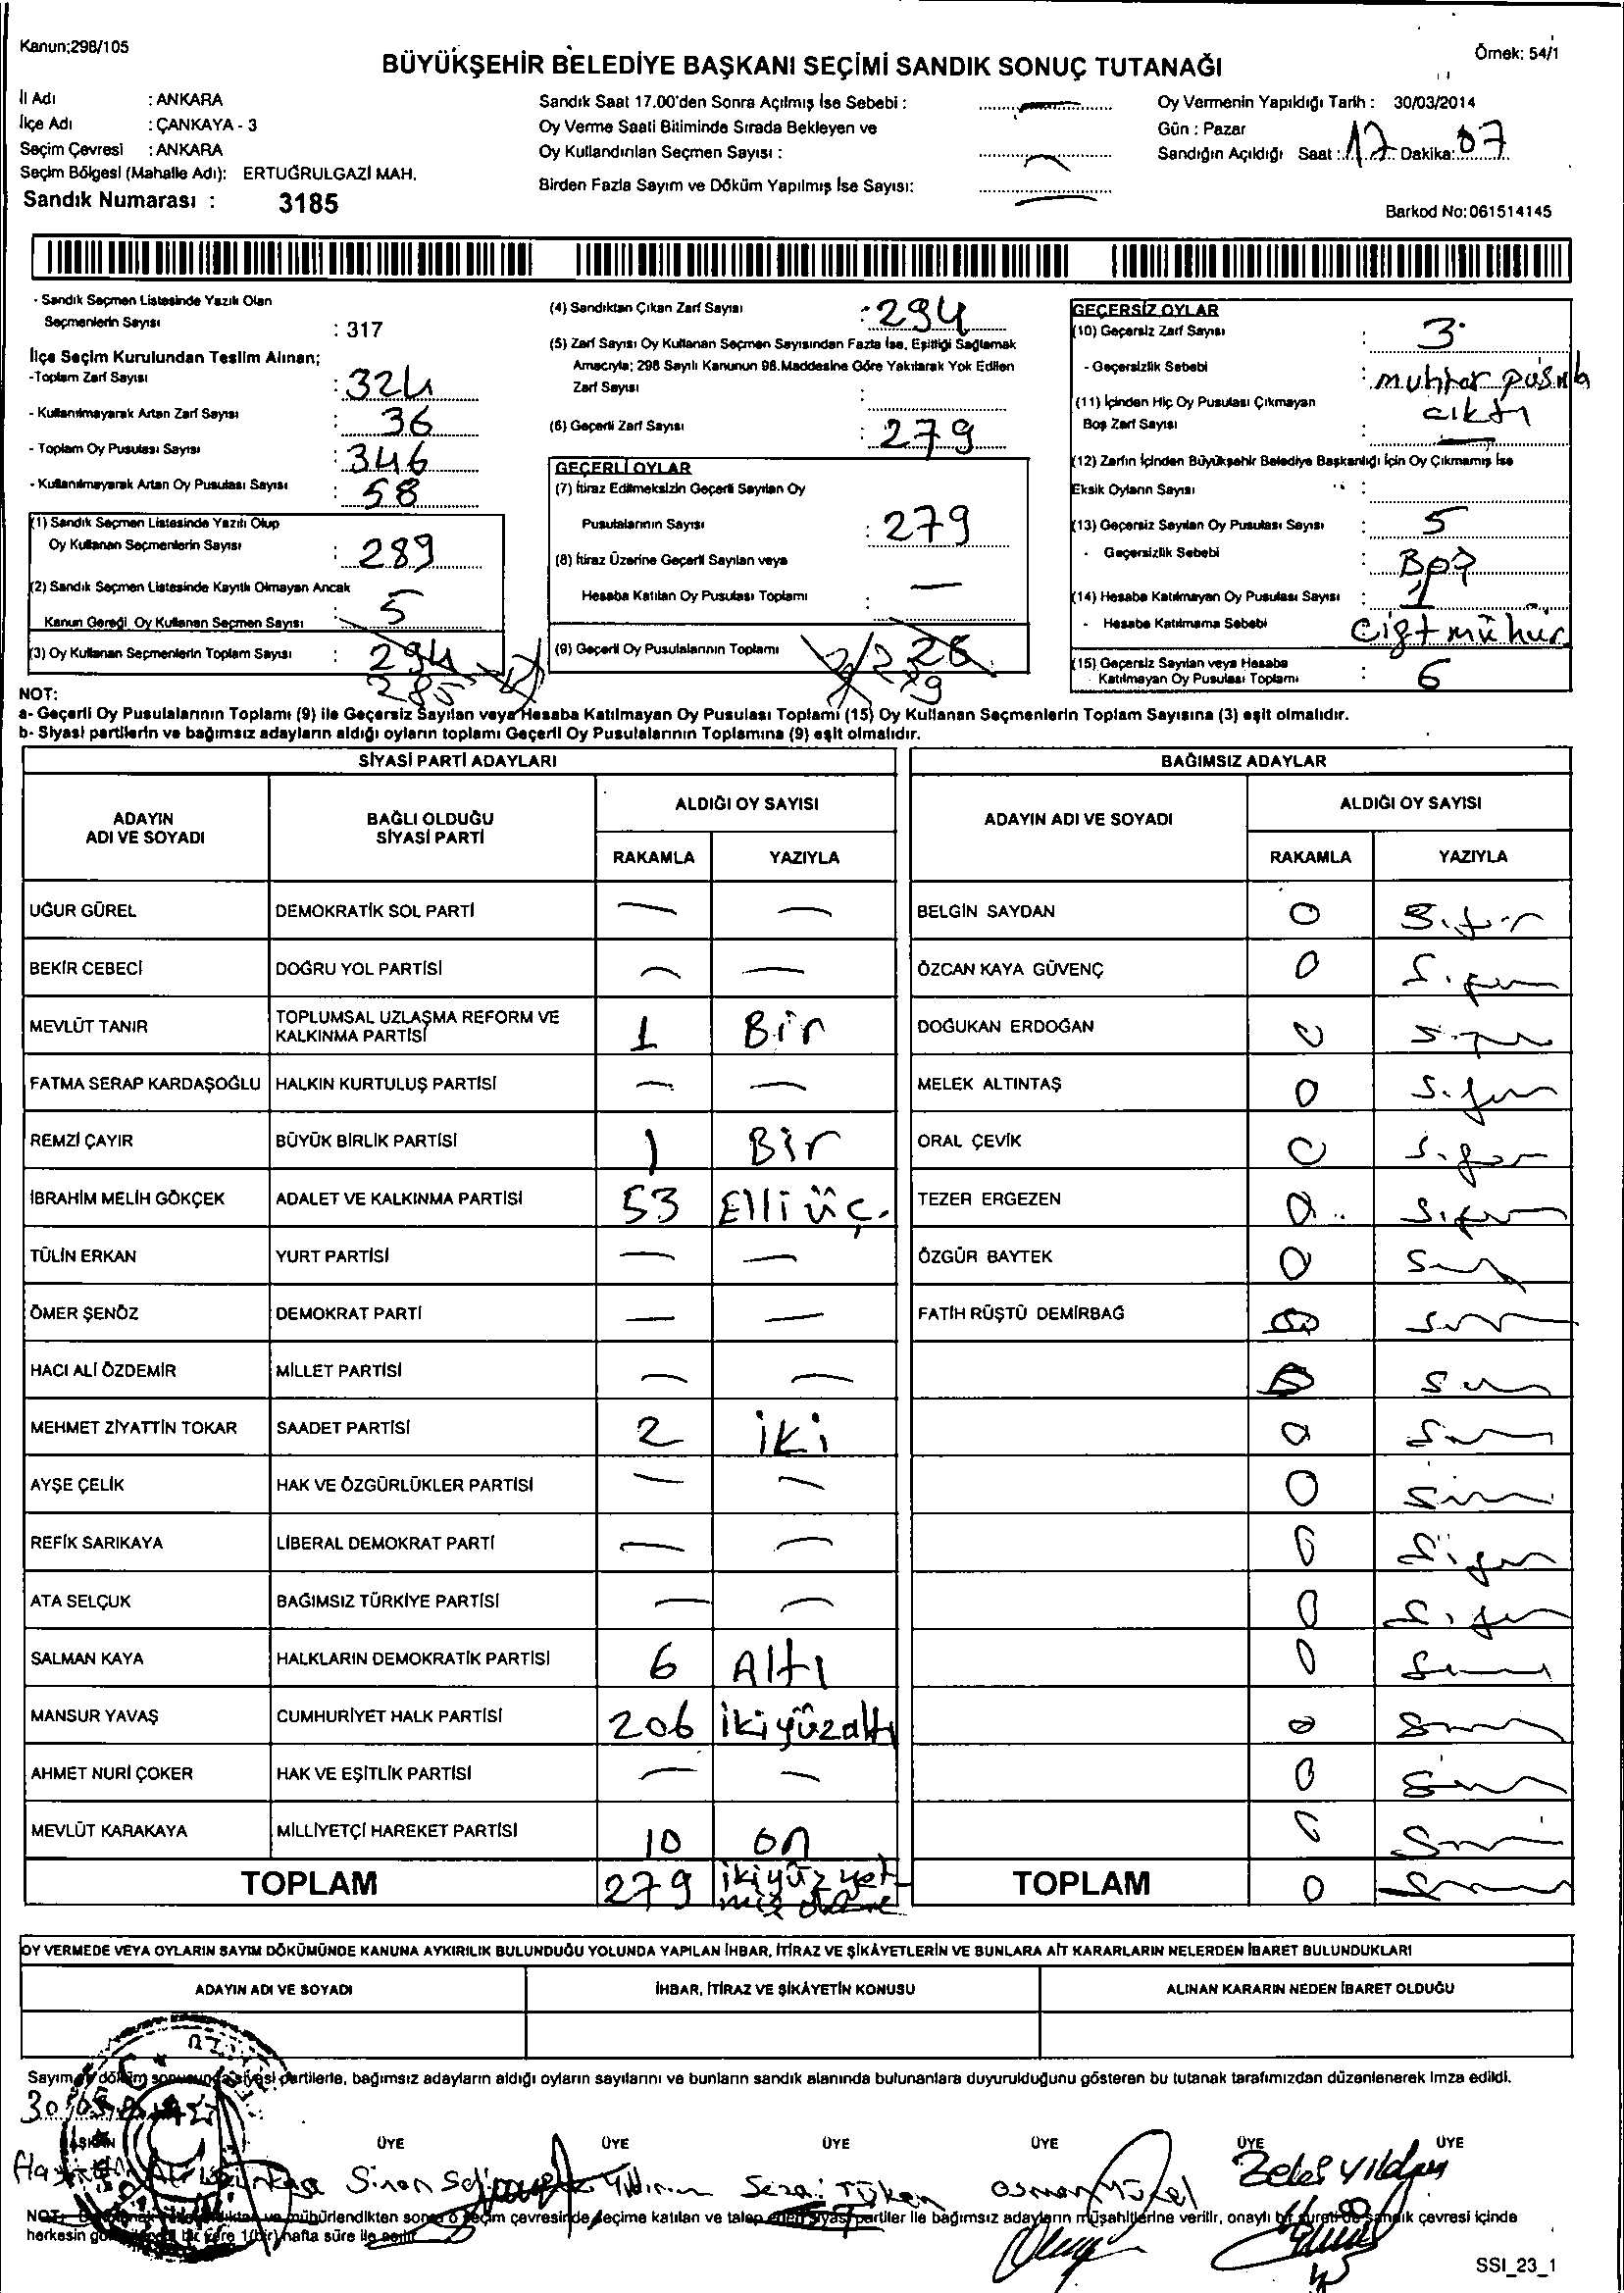 Kanun;298/105
Örnek: 54/1
BÜYÜKŞEHİR BELEDİYE BAŞKANI SEÇİMİ SANDIK SONUÇ TUTANAĞI
İl Adı : ANKARA
İlçe Adı : ÇANKAYA - 3
Seçim Çevresi : ANKARA
Seçim Bölgesi (Mahalle Adı): ERTUĞRULGAZİ MAH.
Sandık Numarası : 3185
Sandık Saat 17.00'den Sonra Açılmış İse Sebebi :
Oy Verme Saati Bitiminde Sırada Bekleyen ve
Oy Kullandırılan Seçmen Sayısı :
Birden Fazla Sayım ve Döküm Yapılmış İse Sayısı:
Oy Vermenin Yapıldığı Tarih : 30/03/2014
Gün : Pazar
Sandığın Açıldığı Saat : 17 Dakika: 07
Barkod No: 061514145
- Sandık Seçmen Listesinde Yazılı Olan
Seçmenlerin Sayısı : 317
İlçe Seçim Kurulundan Teslim Alınan;
-Toplam Zarf Sayısı : 324
- Kullanılmayarak Artan Zarf Sayısı : 36
- Toplam Oy Pusulası Sayısı : 346
- Kullanılmayarak Artan Oy Pusulası Sayısı : 58
(1) Sandık Seçmen Listesinde Yazılı Olup
Oy Kullanan Seçmenlerin Sayısı : 289
(2) Sandık Seçmen Listesinde Kayıtlı Olmayan Ancak
Kanun Gereği Oy Kullanan Seçmen Sayısı : 5
(3) Oy Kullanan Seçmenlerin Toplam Sayısı : 294
285
(4) Sandıktan Çıkan Zarf Sayısı : 294
(5) Zarf Sayısı Oy Kullanan Seçmen Sayısından Fazla İse, Eşitliği Sağlamak
Amacıyla; 298 Sayılı Kanunun 98.Maddesine Göre Yakılarak Yok Edilen
Zarf Sayısı :
(6) Geçerli Zarf Sayısı : 279
GEÇERLİ OYLAR
(7) İtiraz Edilmeksizin Geçerli Sayılan Oy
Pusulalarının Sayısı : 279
(8) İtiraz Üzerine Geçerli Sayılan veya
Hesaba Katılan Oy Pusulası Toplamı : —
(9) Geçerli Oy Pusulalarının Toplamı
GEÇERSİZ OYLAR
(10) Geçersiz Zarf Sayısı : 3
- Geçersizlik Sebebi : muhtar pusula
çıktı
(11) İçinden Hiç Oy Pusulası Çıkmayan
Boş Zarf Sayısı : —
(12) Zarfın İçinden Büyükşehir Belediye Başkanlığı İçin Oy Çıkmamış İse
Eksik Oyların Sayısı :
(13) Geçersiz Sayılan Oy Pusulası Sayısı : 5
- Geçersizlik Sebebi : Boş
(14) Hesaba Katılmayan Oy Pusulası Sayısı : 1
- Hesaba Katılmama Sebebi Çift mühür
(15) Geçersiz Sayılan veya Hesaba
Katılmayan Oy Pusulası Toplamı : 6
NOT:
a- Geçerli Oy Pusulalarının Toplamı (9) ile Geçersiz Sayılan veya Hesaba Katılmayan Oy Pusulası Toplamı (15) Oy Kullanan Seçmenlerin Toplam Sayısına (3) eşit olmalıdır.
b- Siyasi partilerin ve bağımsız adayların aldığı oyların toplamı Geçerli Oy Pusulalarının Toplamına (9) eşit olmalıdır.
SİYASİ PARTİ ADAYLARI
ADAYIN
ADI VE SOYADI
BAĞLI OLDUĞU
SİYASİ PARTİ
ALDIĞI OY SAYISI
RAKAMLA YAZIYLA
UĞUR GÜREL DEMOKRATİK SOL PARTİ — —
BEKİR CEBECİ DOĞRU YOL PARTİSİ — —
MEVLÜT TANIR TOPLUMSAL UZLAŞMA REFORM VE
KALKINMA PARTİSİ 1 Bir
FATMA SERAP KARDAŞOĞLU HALKIN KURTULUŞ PARTİSİ — —
REMZİ ÇAYIR BÜYÜK BİRLİK PARTİSİ 1 Bir
İBRAHİM MELİH GÖKÇEK ADALET VE KALKINMA PARTİSİ 53 Elli üç.
TÜLİN ERKAN YURT PARTİSİ — —
ÖMER ŞENÖZ DEMOKRAT PARTİ — —
HACI ALİ ÖZDEMİR MİLLET PARTİSİ — —
MEHMET ZİYATTİN TOKAR SAADET PARTİSİ 2 iki
AYŞE ÇELİK HAK VE ÖZGÜRLÜKLER PARTİSİ — —
REFİK SARIKAYA LİBERAL DEMOKRAT PARTİ — —
ATA SELÇUK BAĞIMSIZ TÜRKİYE PARTİSİ — —
SALMAN KAYA HALKLARIN DEMOKRATİK PARTİSİ 6 Altı
MANSUR YAVAŞ CUMHURİYET HALK PARTİSİ 206 ikiyüzaltı
AHMET NURİ ÇOKER HAK VE EŞİTLİK PARTİSİ — —
MEVLÜT KARAKAYA MİLLİYETÇİ HAREKET PARTİSİ 10 on
TOPLAM 279 ikiyüz yet-
miş
BAĞIMSIZ ADAYLAR
ADAYIN ADI VE SOYADI
ALDIĞI OY SAYISI
RAKAMLA YAZIYLA
BELGİN SAYDAN 0 Sıfır
ÖZCAN KAYA GÜVENÇ 0 Sıfır
DOĞUKAN ERDOĞAN 0 Sıfır
MELEK ALTINTAŞ 0 Sıfır
ORAL ÇEVİK 0 Sıfır
TEZER ERGEZEN 0 Sıfır
ÖZGÜR BAYTEK 0
FATİH RÜŞTÜ DEMİRBAĞ
0
0
0 Sıfır
0 Sıfır
0
0
0
0
TOPLAM 0
OY VERMEDE VEYA OYLARIN SAYIM DÖKÜMÜNDE KANUNA AYKIRILIK BULUNDUĞU YOLUNDA YAPILAN İHBAR, İTİRAZ VE ŞİKÂYETLERİN VE BUNLARA AİT KARARLARIN NELERDEN İBARET BULUNDUKLARI
ADAYIN ADI VE SOYADI
İHBAR, İTİRAZ VE ŞİKÂYETİN KONUSU
ALINAN KARARIN NEDEN İBARET OLDUĞU
Sayım döküm sonucunda siyasi partilerle, bağımsız adayların aldığı oyların sayılarını ve bunların sandık alanında bulunanlara duyurulduğunu gösteren bu tutanak tarafımızdan düzenlenerek imza edildi.
BAŞKAN ÜYE ÜYE ÜYE ÜYE ÜYE ÜYE
Sinan Yıldırım Sezai Tüken Osman Yücel Yıldız
NOT: mühürlendikten sonra o seçim çevresinde seçime katılan ve talep eden siyasi partiler ile bağımsız adayların müşahitlerine verilir, onaylı bir sureti de sandık çevresi içinde
herkesin bir yere 1(bir) hafta süre ile asılır.
SSI_23_1